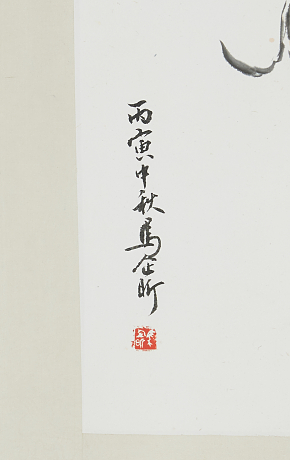 丙寅中秋馬企昕